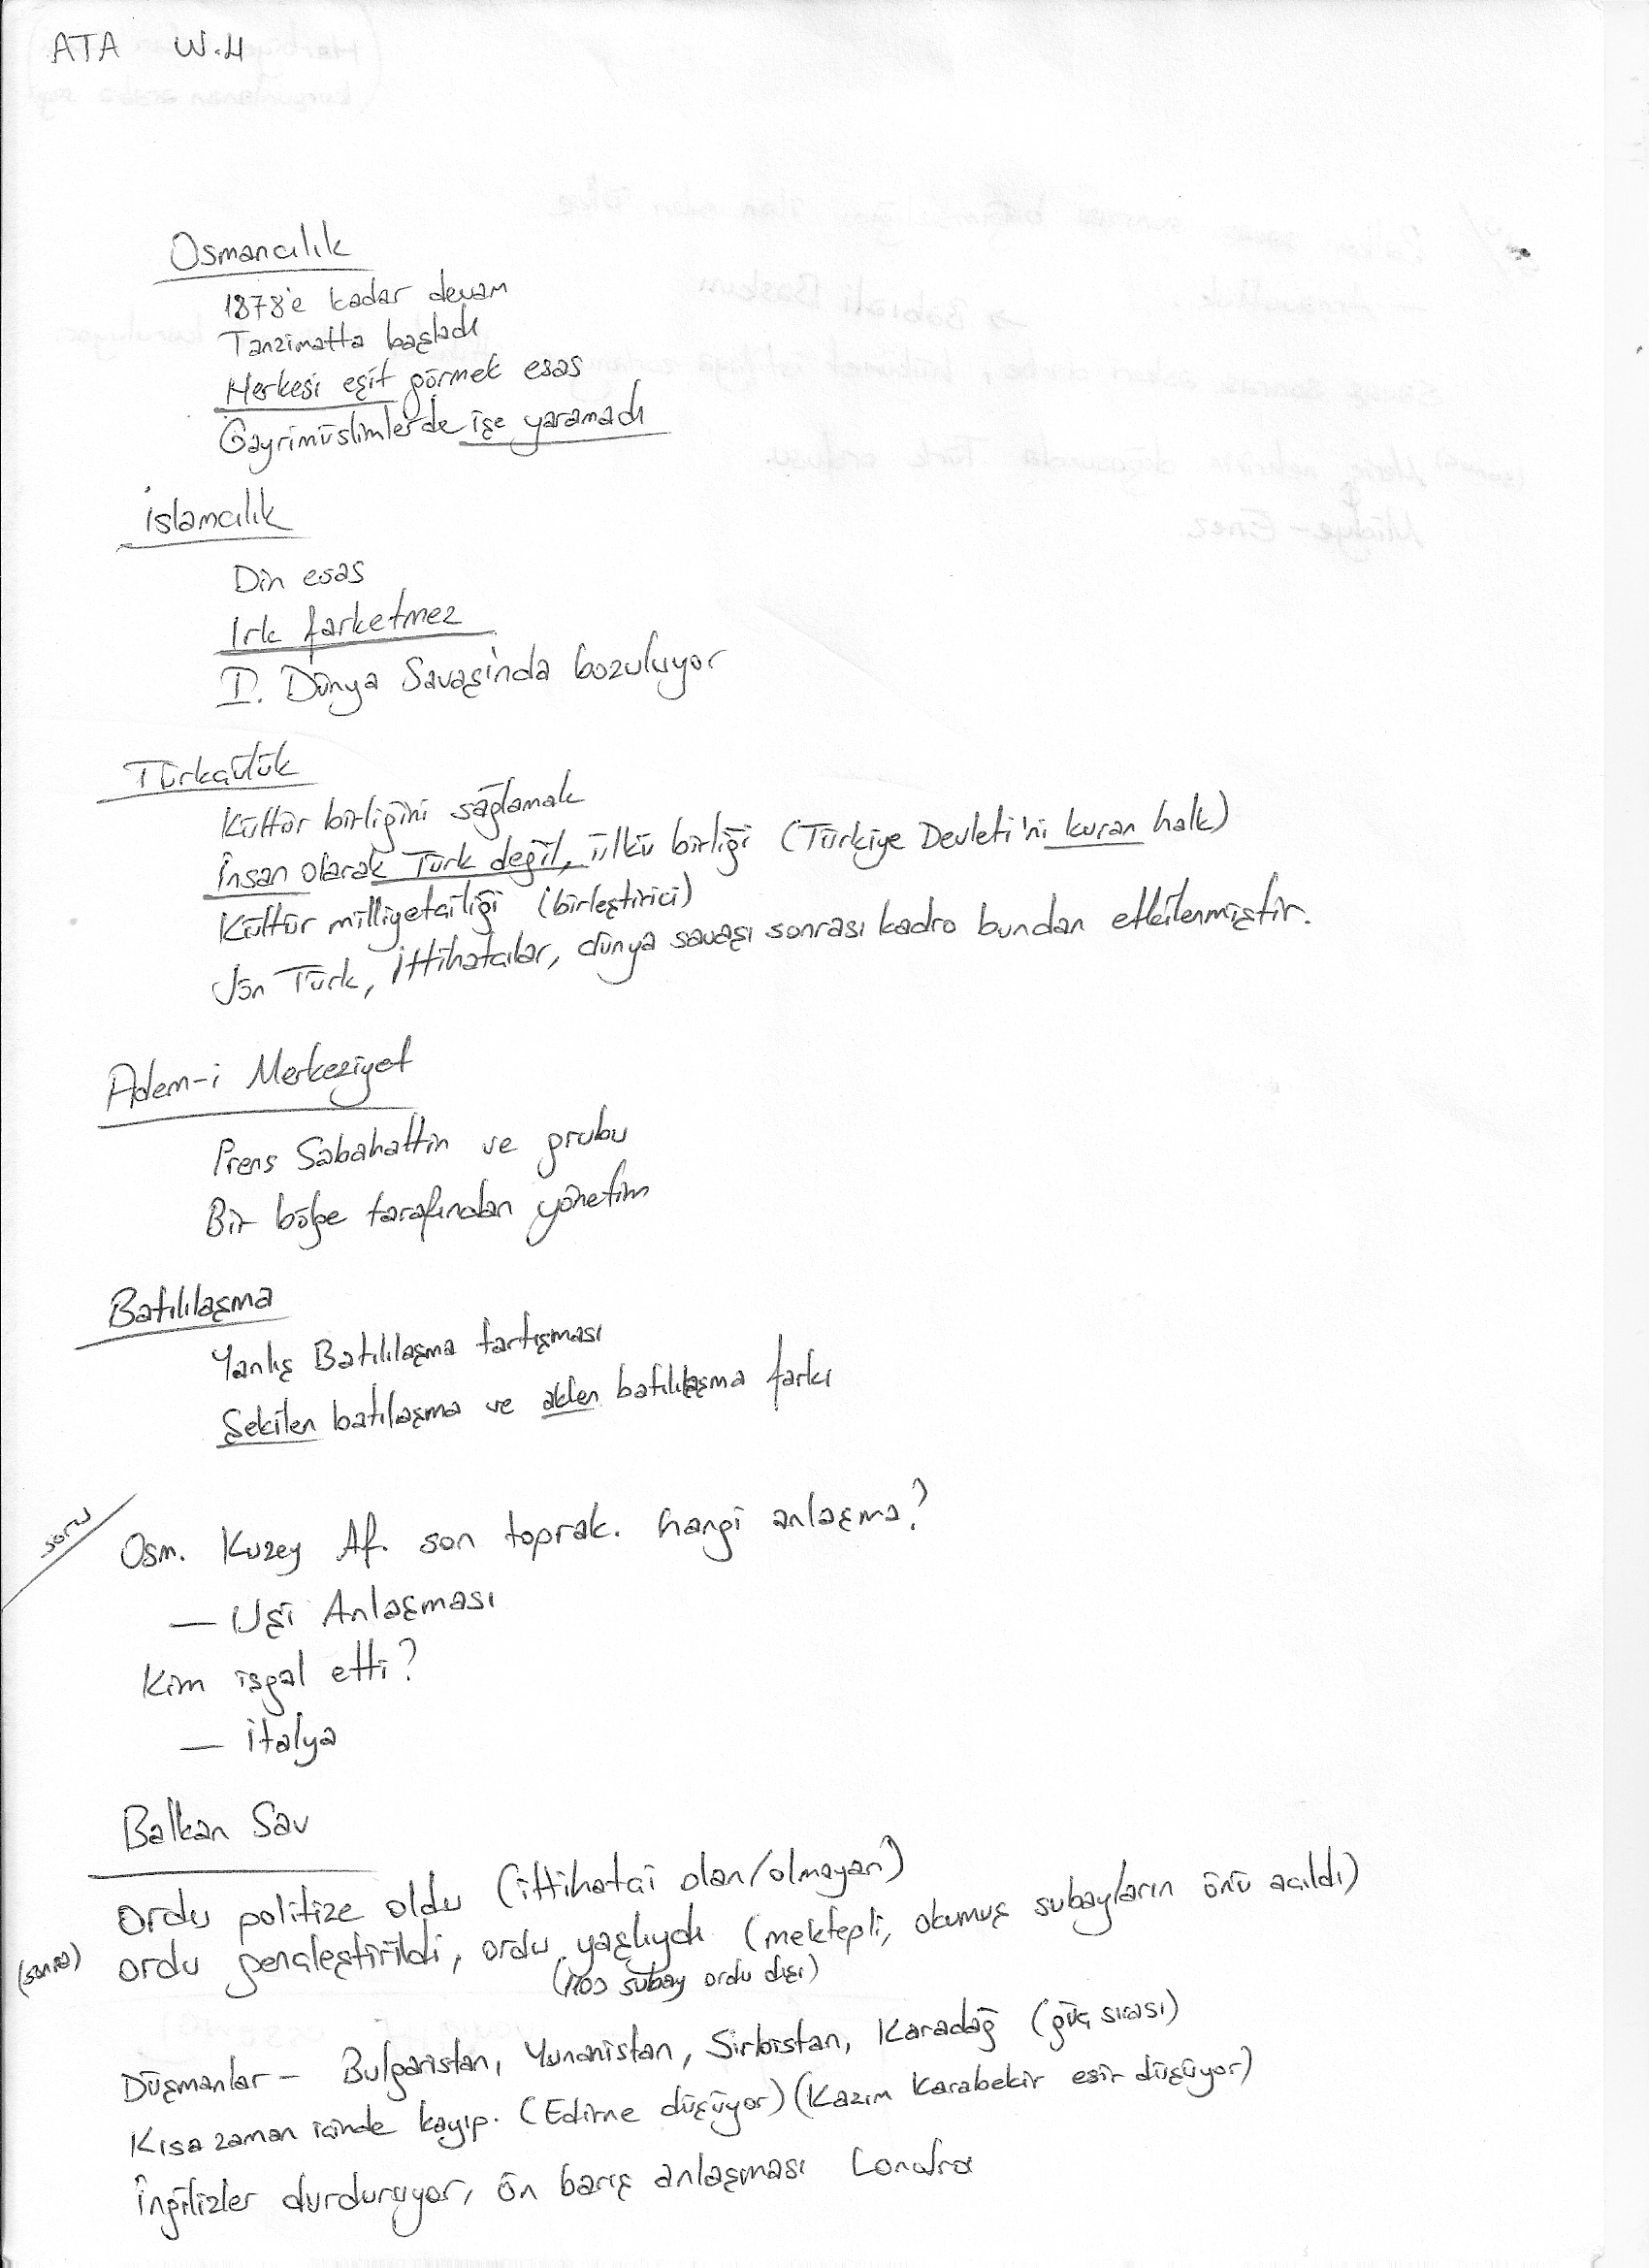 ATA W.4
Osmancılık
1878'e kadar devam
Tanzimatta başladı
Herkesi eşit görmek esas
Gayrimüslimlerde işe yaramadı
İslamcılık
Din esas
Irk farketmez
I. Dünya Savaşında bozuluyor
Türkçülük
Kültür birliğini sağlamak
İnsan olarak Türk değil, ülkü birliği (Türkiye Devleti'ni kuran halk)
Kültür milliyetçiliği (birleştirici)
Jön Türk, İttihatçılar, dünya savaşı sonrası kadro bundan etkilenmiştir.
Adem-i Merkeziyet
Prens Sabahattin ve grubu
Bir bölge tarafından yönetim
Batılılaşma
Yanlış Batılılaşma tartışması
Şekilen batılaşma ve aklen batılılaşma farkı
soru
Osm. Kuzey Af. son toprak. hangi anlaşma?
— Uşi Anlaşması
Kim işgal etti?
— İtalya
Balkan Sav
Ordu politize oldu (ittihatçi olan/olmayan)
(sonra) ordu gençleştirildi, ordu yaşlıydı (mektepli, okumuş subayların önü açıldı)
(1100 subay ordu dışı)
Düşmanlar — Bulgaristan, Yunanistan, Sırbistan, Karadağ (güç sırası)
Kısa zaman içinde kayıp. (Edirne düşüyor) (Kazım Karabekir esir düşüyor)
İngilizler durduruyor, ön barış anlaşması Londra